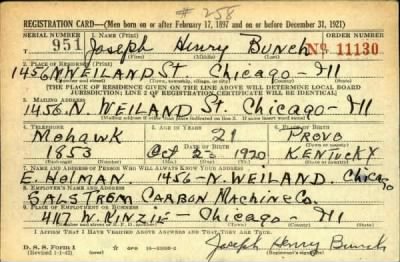 # 258
REGISTRATION CARD—(Men born on or after February 17, 1897 and on or before December 31, 1921)
SERIAL NUMBER 1. NAME (Print) ORDER NUMBER
951 Joseph Henry Bunch No. 11130
(First) (Middle) (Last)
2. PLACE OF RESIDENCE (Print)
1456 N WEILAND St Chicago - Ill
(Number and street) (Town, township, village, or city) (County) (State)
[THE PLACE OF RESIDENCE GIVEN ON THE LINE ABOVE WILL DETERMINE LOCAL BOARD
JURISDICTION; LINE 2 OF REGISTRATION CERTIFICATE WILL BE IDENTICAL]
3. MAILING ADDRESS
1456 N. WEILAND St. Chicago - Ill
[Mailing address if other than place indicated on line 2. If same insert word same]
4. TELEPHONE 5. AGE IN YEARS 6. PLACE OF BIRTH
Mohawk 21 Provo
DATE OF BIRTH
1853 Oct 1920 KENTUCKY
(Exchange) (Number) (Mo.) (Day) (Yr.) (State or country)
7. NAME AND ADDRESS OF PERSON WHO WILL ALWAYS KNOW YOUR ADDRESS
E. HOLMAN. 1456-N. WEILAND Chicago
8. EMPLOYER'S NAME AND ADDRESS
GALSTROM CARBON MACHINE Co.
9. PLACE OF EMPLOYMENT OR BUSINESS
4117 W. KINZIE - Chicago - Ill
(Number and street or R. F. D. number) (Town) (County) (State)
I AFFIRM THAT I HAVE VERIFIED ABOVE ANSWERS AND THAT THEY ARE TRUE.
D. S. S. Form 1
(Revised 1-1-42) GPO Joseph Henry Bunch
(Registrant's signature)